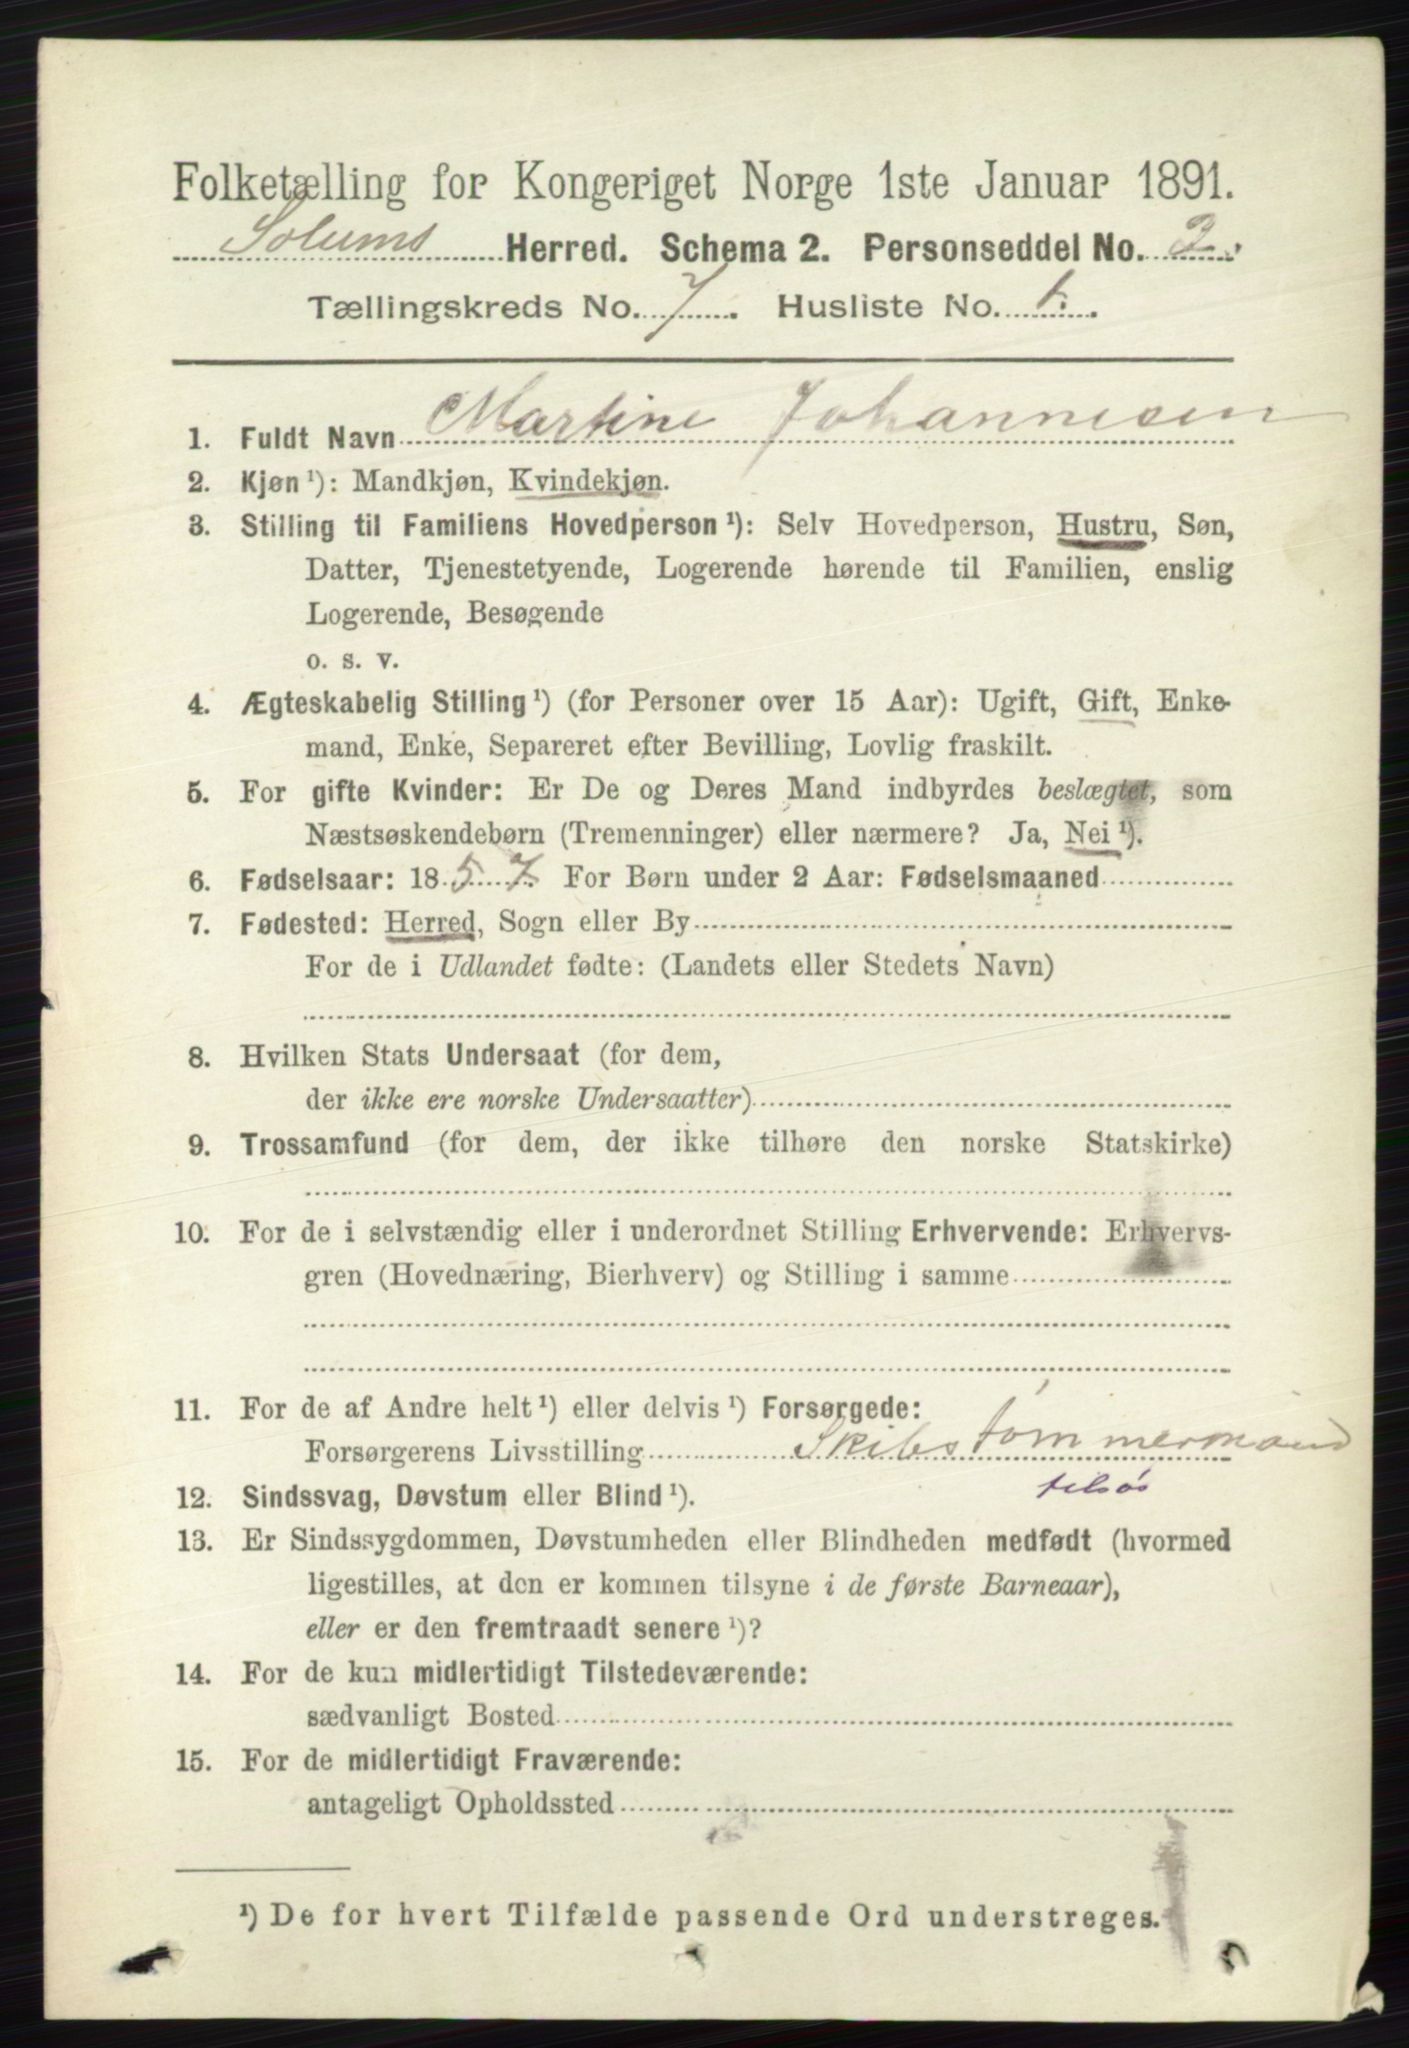 Folketælling for Kongeriget Norge 1ste Januar 1891.
Solums Herred. Schema 2. Personseddel No. 2.
Tællingskreds No. 7. Husliste No. 1.
1. Fuldt Navn Martine Johannesen
2. Kjøn ¹): Mandkjøn, Kvindekjøn.
3. Stilling til Familiens Hovedperson ¹): Selv Hovedperson, Hustru, Søn,
Datter, Tjenestetyende, Logerende hørende til Familien, enslig
Logerende, Besøgende
o. s. v.
4. Ægteskabelig Stilling ¹) (for Personer over 15 Aar): Ugift, Gift, Enke-
mand, Enke, Separeret efter Bevilling, Lovlig fraskilt.
5. For gifte Kvinder: Er De og Deres Mand indbyrdes beslægtet, som
Næstsøskendebørn (Tremenninger) eller nærmere? Ja, Nei ¹).
6. Fødselsaar: 1857. For Børn under 2 Aar: Fødselsmaaned
7. Fødested: Herred, Sogn eller By
For de i Udlandet fødte: (Landets eller Stedets Navn)
8. Hvilken Stats Undersaat (for dem,
der ikke ere norske Undersaatter)
9. Trossamfund (for dem, der ikke tilhøre den norske Statskirke)
10. For de i selvstændig eller i underordnet Stilling Erhvervende: Erhvervs-
gren (Hovednæring, Bierhverv) og Stilling i samme
11. For de af Andre helt ¹) eller delvis ¹) Forsørgede:
Forsørgerens Livsstilling Skibstømmermand
tilsøs
12. Sindssvag, Døvstum eller Blind ¹).
13. Er Sindssygdommen, Døvstumheden eller Blindheden medfødt (hvormed
ligestilles, at den er kommen tilsyne i de første Barneaar),
eller er den fremtraadt senere ¹)?
14. For de kun midlertidigt Tilstedeværende:
sædvanligt Bosted
15. For de midlertidigt Fraværende:
antageligt Opholdssted
¹) De for hvert Tilfælde passende Ord understreges.